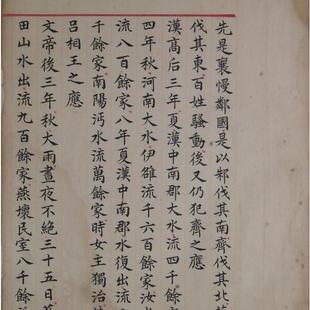 先是襄慢鄰國是以邾伐其南齊伐其北莒
伐其東百姓騷動後又仍犯齊之應
漢高后三年夏漢中南郡大水流四千餘家
四年秋河南大水伊雒流千六百餘家汝水
流八百餘家八年夏漢中南郡水復出流
千餘家南陽沔水流萬餘家時女主獨治
呂相王之應
文帝後三年秋大雨晝夜不絕三十五日藍
田山水出流九百餘家燕壞民室八千餘